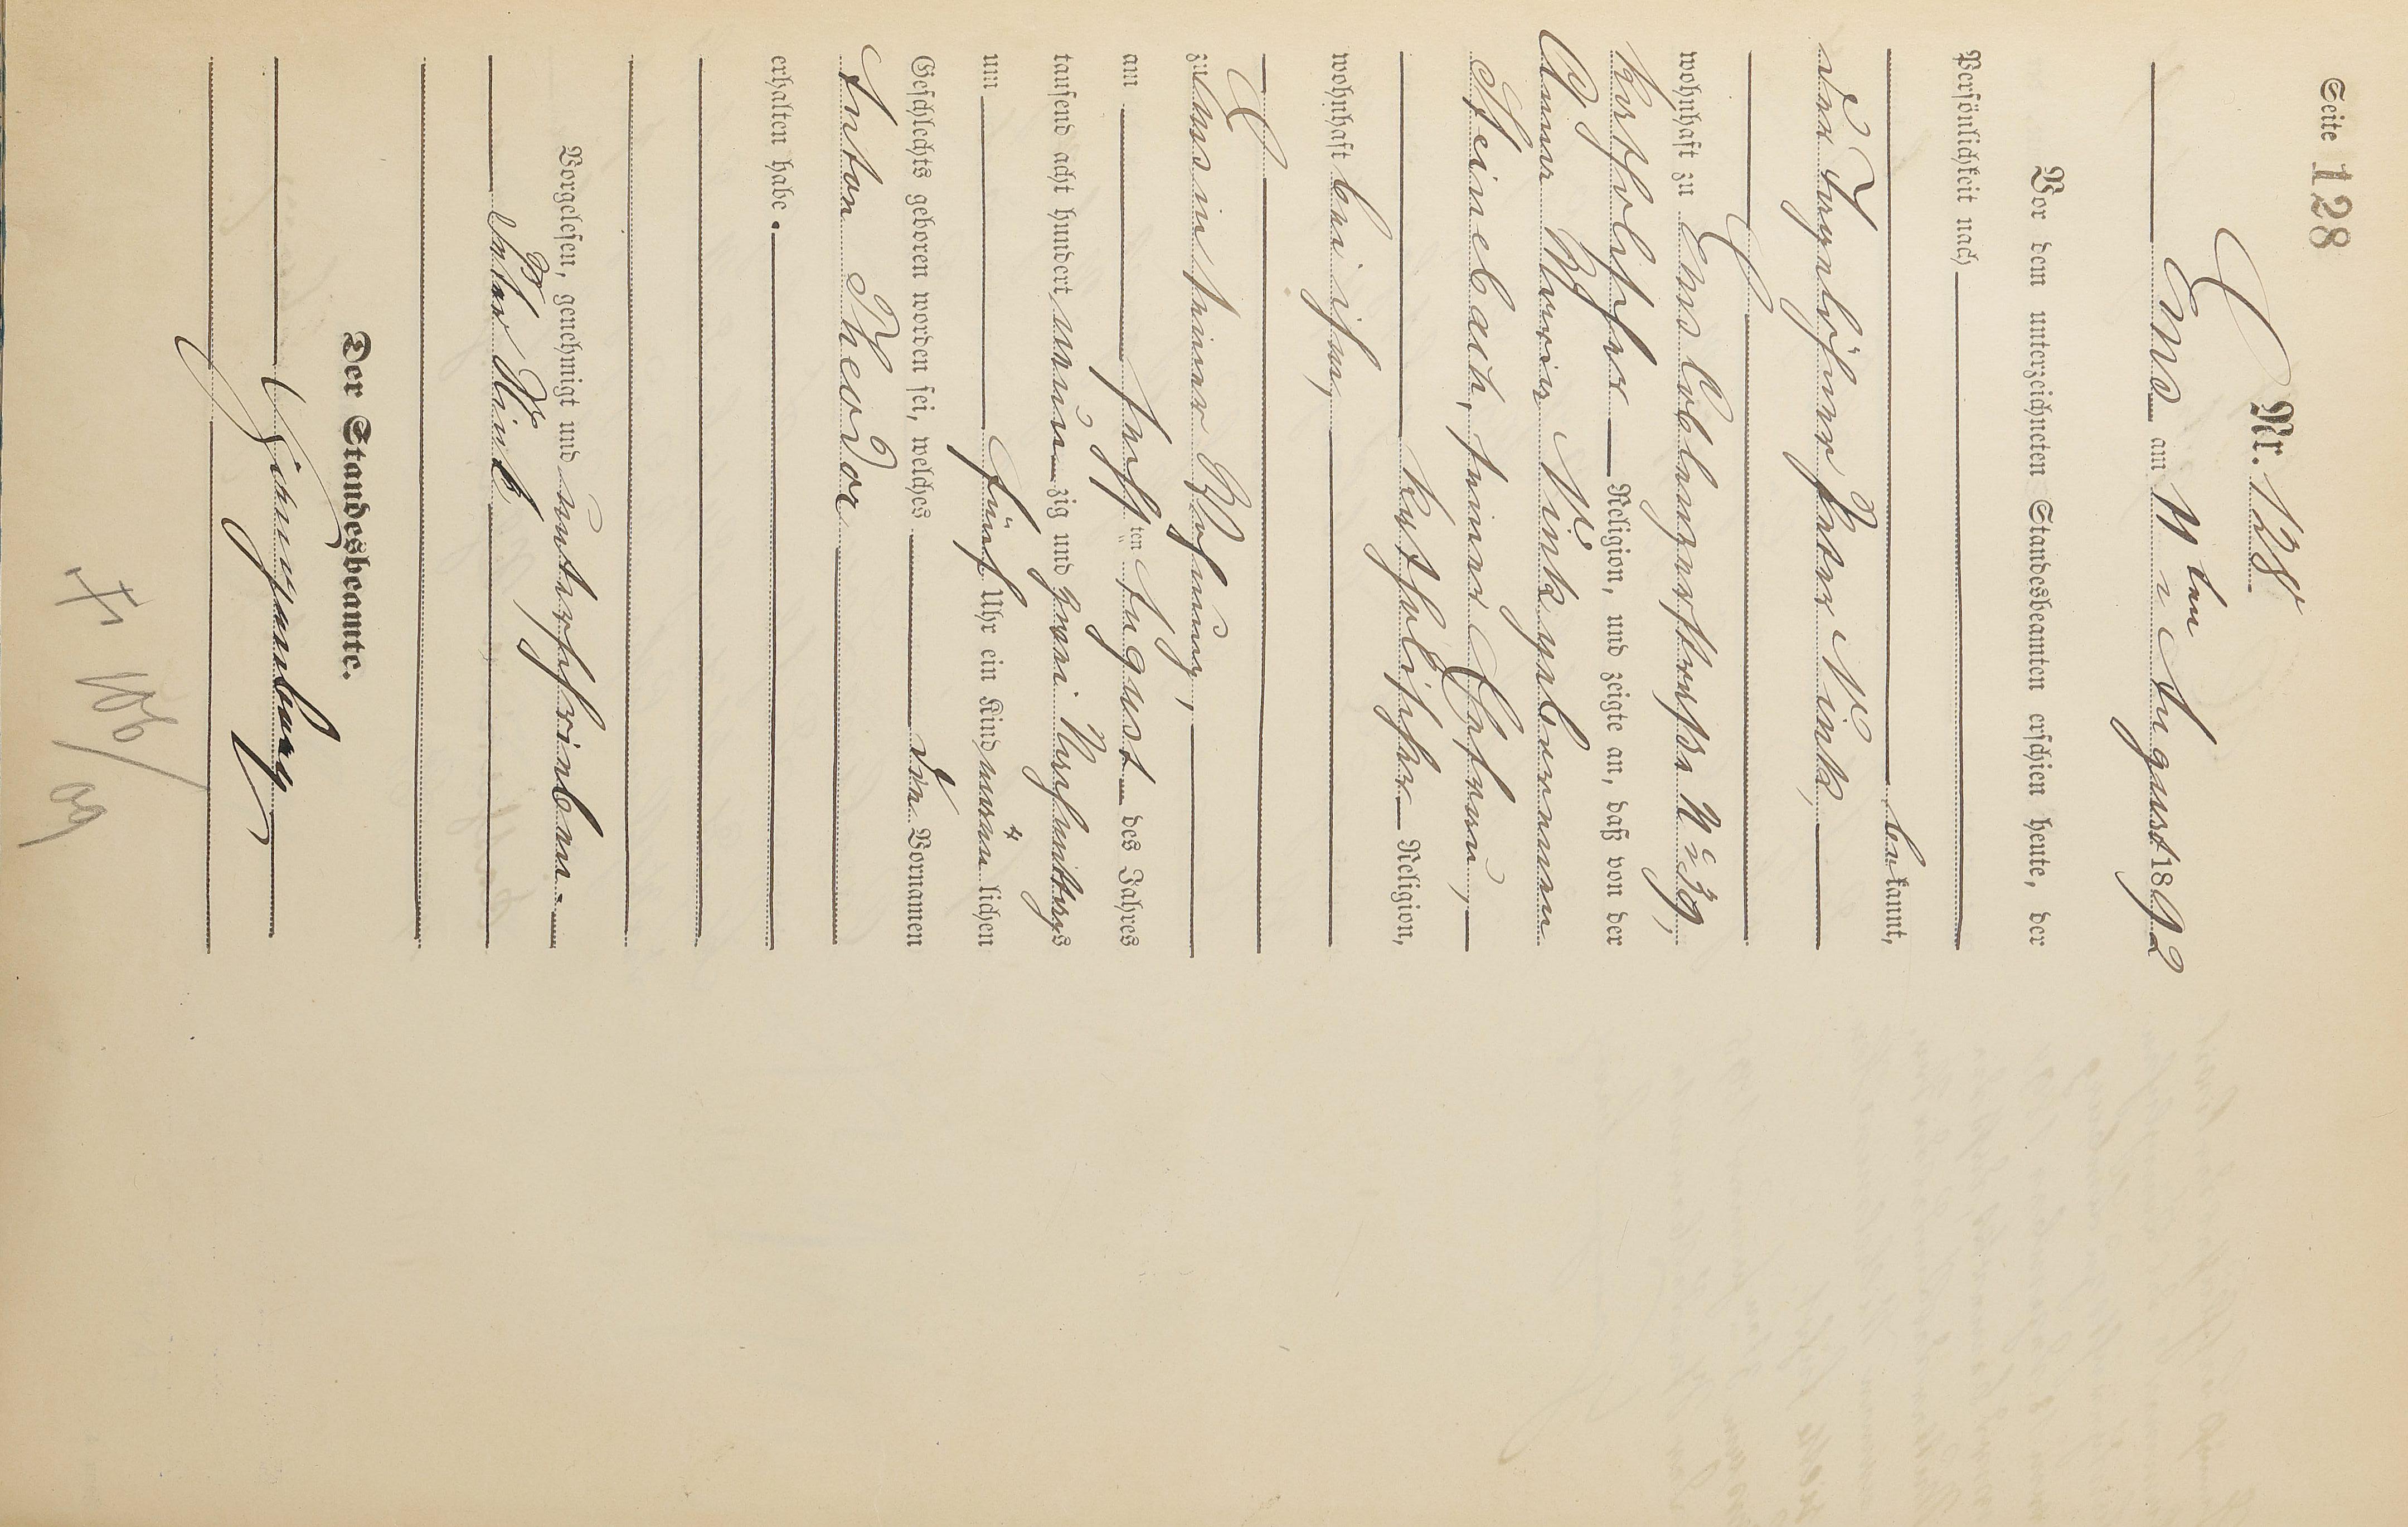 Seite 128
Nr. 128
Ems am 11 ten August 1892
Vor dem unterzeichneten Standesbeamten erschien heute, der
Persönlichkeit nach
bekannt,
der Tagelöhner Peter Mink,
wohnhaft zu Ems Coblenzerstraße No 39,
katholischer Religion, und zeigte an, daß von der
Anna Maria Mink geborenen
Steinebach, seiner Ehefrau,
katholischer Religion,
wohnhaft bei ihm,
zu Ems in seiner Wohnung,
am sechsten August des Jahres
tausend acht hundert neunzig und zwei Nachmittags
um fünf Uhr ein Kind männlichen
Geschlechts geboren worden sei, welches die Vornamen
Anton Theodor
erhalten habe.
Vorgelesen, genehmigt und unterschrieben.
Peter Mink
Der Standesbeamte.
106/09